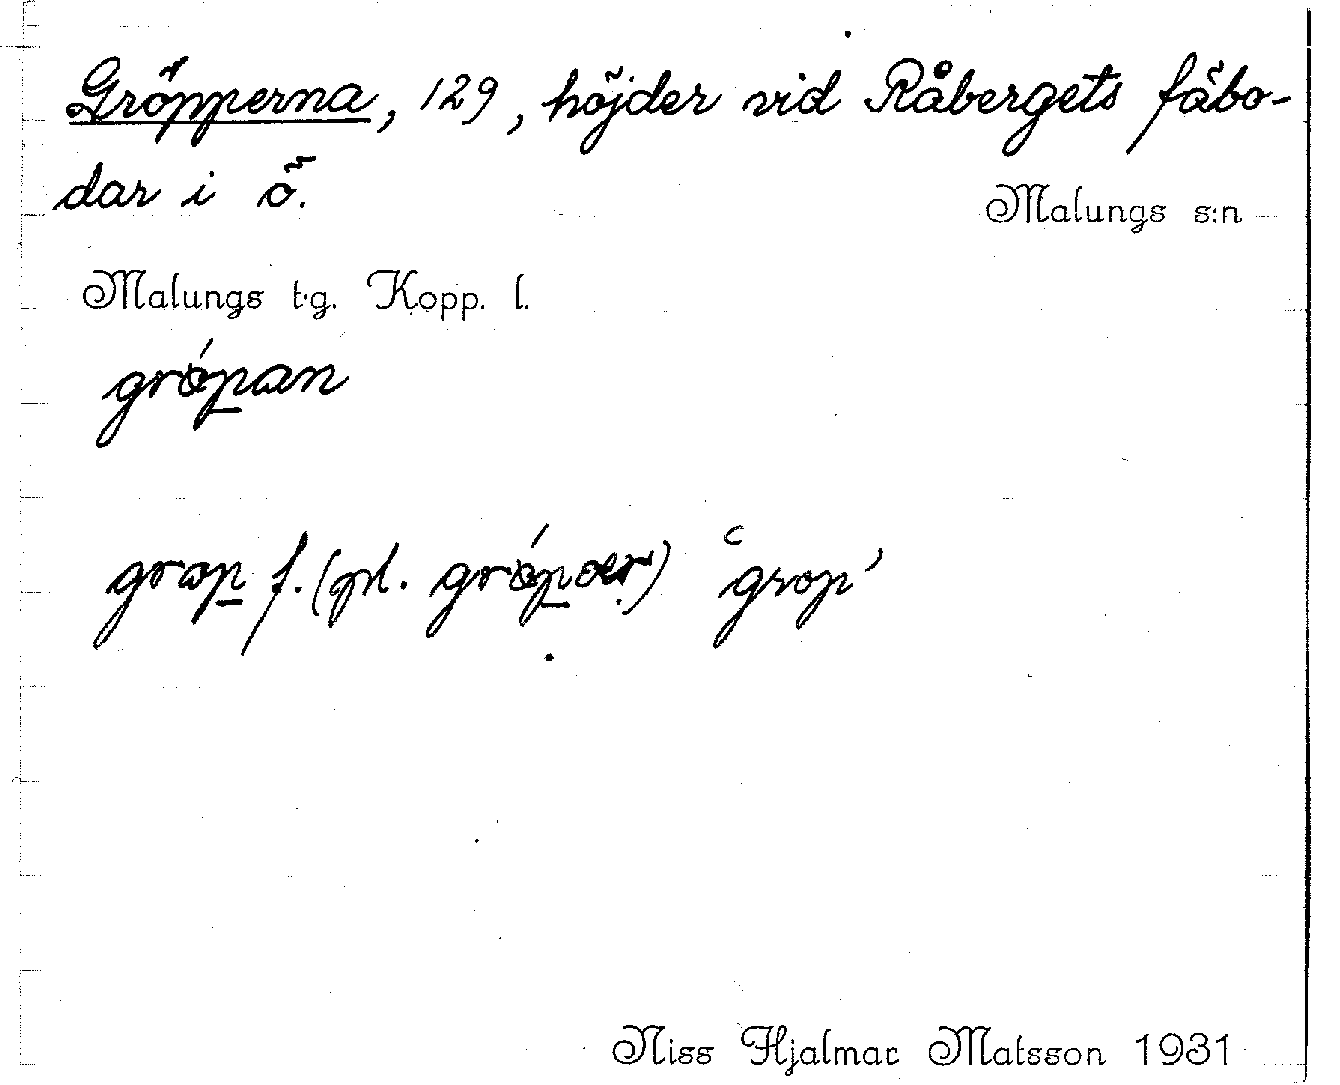 Gröpperna, 129, höjder vid Råbergets fäbo-
dar i ö.
Malungs s:n
Malungs t.g. Kopp. l.
grópan
grop f. (pl. grópær) ‘grop’
Niss Hjalmar Matsson 1931